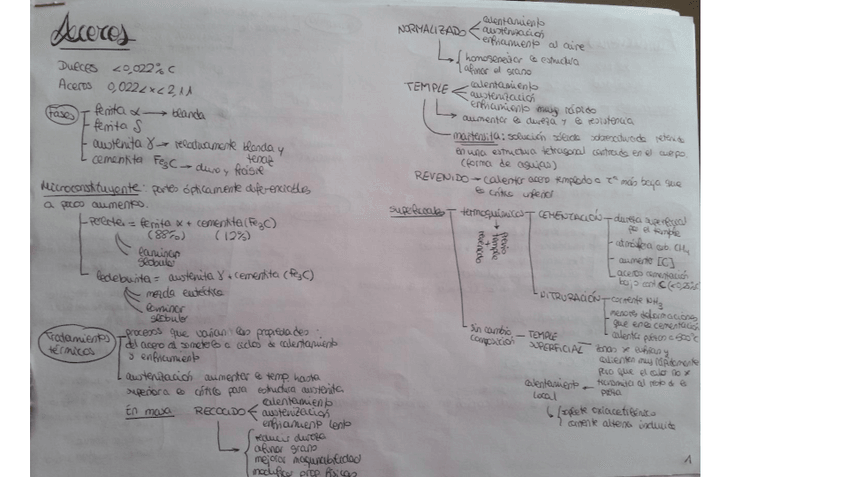 Aceros
DULCES <0,022% C
ACEROS 0,022<x<2,11
Fases
ferrita α → blanda
ferrita δ
austenita γ → relativamente blanda y
tenaz
cementita Fe3C → duro y frágil
Microconstituyente: partes ópticamente diferenciables
a pocos aumentos.
perlita = ferrita α + cementita (Fe3C)
(88%) (12%)
laminar
globular
ledeburita = austenita γ + cementita (Fe3C)
mezcla eutéctica
laminar
globular
Tratamientos
térmicos
procesos que varían las propiedades
del acero al someterlo a ciclos de calentamiento
y enfriamiento
austenización aumentar la temp. hasta
superior a la crítica para estructura austenita
En masa RECOCIDO
calentamiento
austenización
enfriamiento lento
reducir dureza
afinar grano
mejorar maquinabilidad
modificar prop físicas
NORMALIZADO
calentamiento
austenización
enfriamiento al aire
homogeneizar la estructura
afinar el grano
TEMPLE
calentamiento
austenización
enfriamiento muy rápido
aumentar la dureza y la resistencia
martensita: solución sólida sobresaturada
en una estructura tetragonal centrada en el cuerpo
(forma de agujas)
REVENIDO → calentar acero templado a Tª más baja que
la crítica inferior
superficiales
termoquímicos
CEMENTACIÓN
dureza superficial
por el temple
atmósfera con CH4
aumento [C]
aceros cementación
bajo cont C (<0,25%)
NITRURACIÓN
corriente NH3
menores deformaciones
que en la cementación
calentar piezas a 500°C
sin cambio
composición
TEMPLE
SUPERFICIAL
zonas x enfrían y
calientan muy rápidamente
para que el calor no x
transmita al resto de la
pieza
calentamiento
local
soplete oxiacetilénico
corriente alterna inducida
1